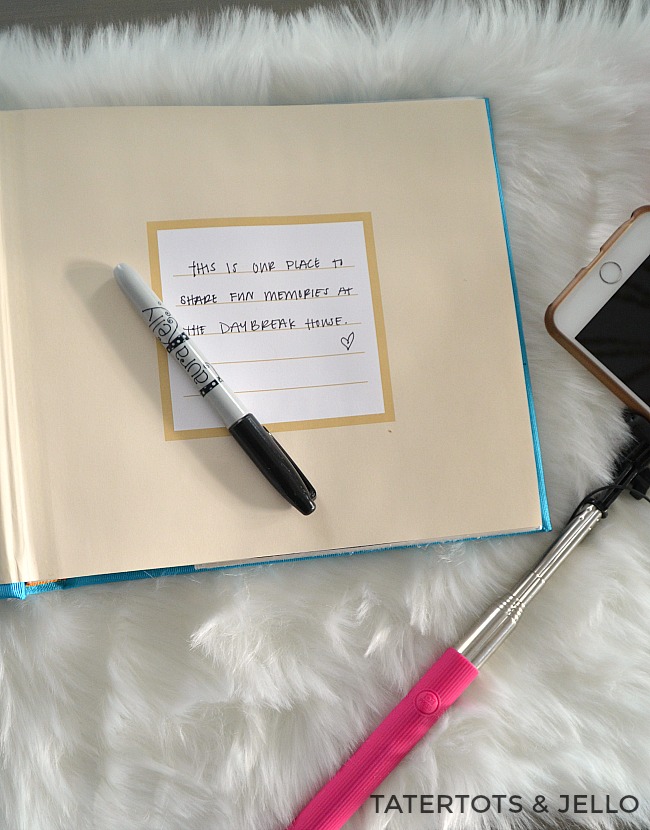 THIS IS OUR PLACE TO
SHARE FUN MEMORIES AT
THE DAYBREAK HOUSE.
laura Kelly
TATERTOTS & JELLO